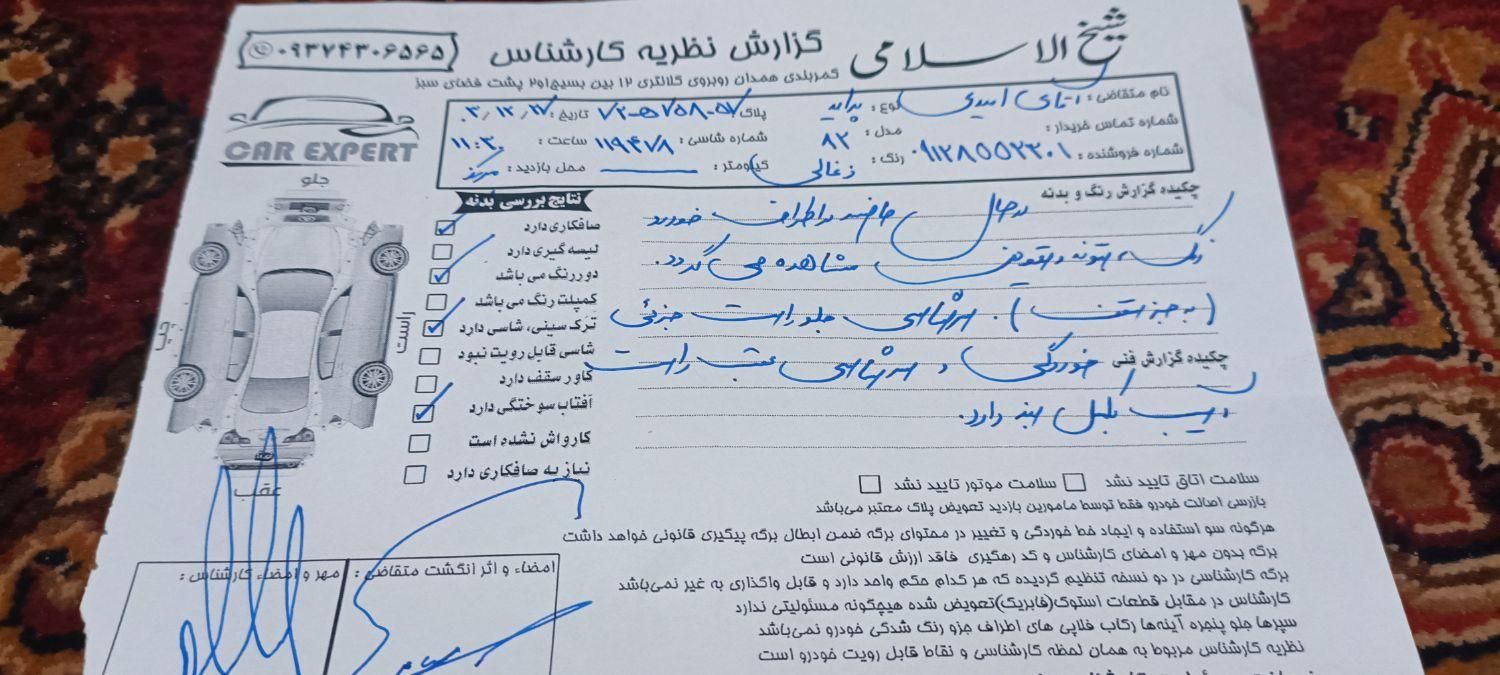 شیخ الاسلامی
گزارش نظریه کارشناس
۰۹۳۷۴۳۰۶۵۶۵
کمربندی همدان روبروی کلانتری ۱۲ بین بسیج ۱و۲ پشت فضای سبز
نام متقاضی : آقای اسدی نوع : پراید پلاک تاریخ : ۰۳/۱۲/۲۷
شماره تماس خریدار : مدل : ۸۲ شماره شاسی : ۱۱۹۴۷۸ ساعت : ۱۱:۳۰
شماره فروشنده : ۰۹۱۲۸۵۵۲۳۰۱ رنگ : ذغالی کیلومتر : محل بازدید : مرکز
CAR EXPERT
جلو
راست
چپ
عقب
نتایج بررسی بدنه
صافکاری دارد
لیسه گیری دارد
دوررنگ می باشد
کمپلت رنگ می باشد
ترک سینی، شاسی دارد
شاسی قابل رویت نبود
کاور سقف دارد
آفتاب سوختگی دارد
کارواش نشده است
نیاز به صافکاری دارد
چکیده گزارش رنگ و بدنه درحال حاضر در اطراف خودرو
رنگ، بتونه و تعویض مشاهده می گردد.
(به جز سقف). سرشاسی جلو راست جزئی
چکیده گزارش فنی خوردگی و سرشاسی عقب راست
دارد.
سلامت اتاق تایید نشد سلامت موتور تایید نشد
بازرسی اصالت خودرو فقط توسط مامورین بازدید تعویض پلاک معتبر می‌باشد
هرگونه سو استفاده و ایجاد خط خوردگی و تغییر در محتوای برگه ضمن ابطال برگه پیگیری قانونی خواهد داشت
برگه بدون مهر و امضای کارشناس و کد رهگیری فاقد ارزش قانونی است
برگه کارشناسی در دو نسخه تنظیم گردیده که هر کدام حکم واحد دارد و قابل واگذاری به غیر نمی‌باشد
کارشناس در مقابل قطعات استوک(فابریک)تعویض شده هیچگونه مسئولیتی ندارد
سپرها جلو پنجره آینه‌ها رکاب فلاپی های اطراف جزو رنگ شدگی خودرو نمی‌باشد
نظریه کارشناس مربوط به همان لحظه کارشناسی و نقاط قابل رویت خودرو است
امضاء و اثر انگشت متقاضی :
مهر و امضاء کارشناس :